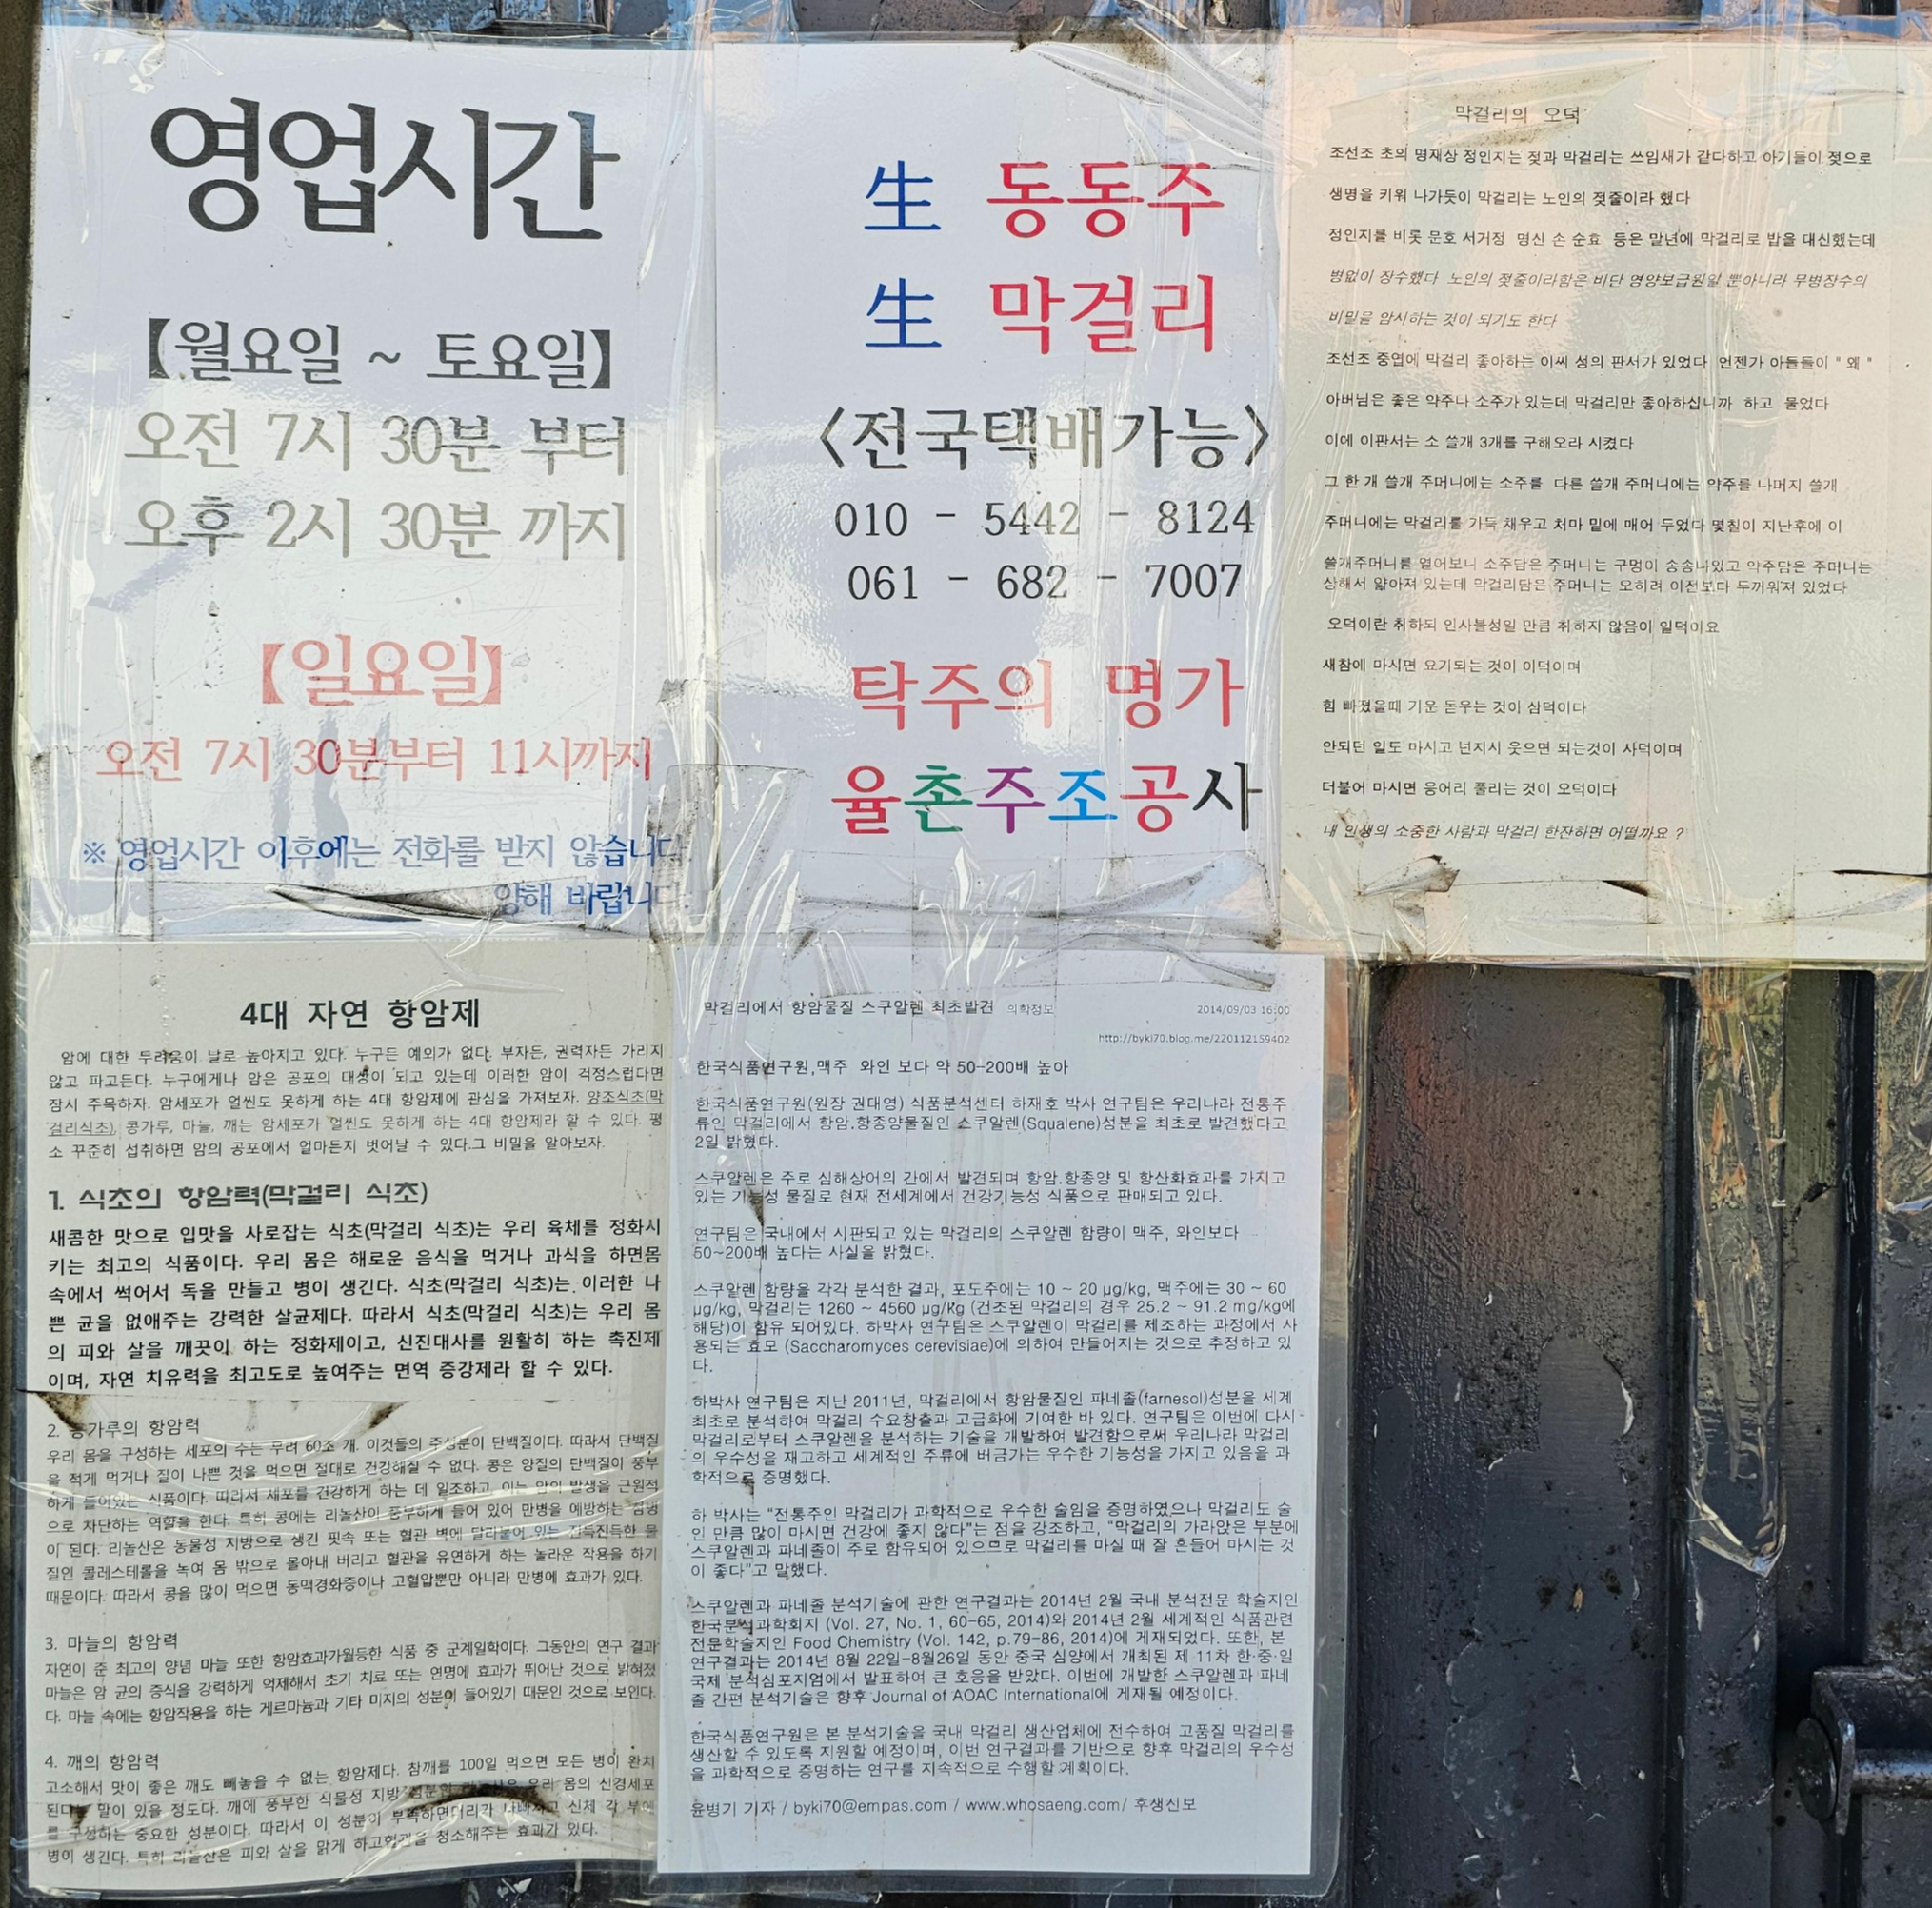 영업시간
【월요일 ~ 토요일】
오전 7시 30분 부터
오후 2시 30분 까지
【일요일】
오전 7시 30분부터 11시까지
※ 영업시간 이후에는 전화를 받지 않습니다.
양해 바랍니다.
生 동동주
生 막걸리
<전국택배가능>
010 - 5442 - 8124
061 - 682 - 7007
탁주의 명가
율촌주조공사
막걸리의 오덕
조선조 초의 명재상 정인지는 젖과 막걸리는 쓰임새가 같다하고 아기들이 젖으로
생명을 키워 나가듯이 막걸리는 노인의 젖줄이라 했다
정인지를 비롯 문호 서거정 명신 손 순효 등은 말년에 막걸리로 밥을 대신했는데
병없이 장수했다 노인의 젖줄이라함은 비단 영양보급원일 뿐아니라 무병장수의
비밀을 암시하는 것이 되기도 한다
조선조 중엽에 막걸리 좋아하는 이씨 성의 판서가 있었다 언젠가 아들들이 " 왜 "
아버님은 좋은 약주나 소주가 있는데 막걸리만 좋아하십니까 하고 물었다
이에 이판서는 소 쓸개 3개를 구해오라 시켰다
그 한 개 쓸개 주머니에는 소주를 다른 쓸개 주머니에는 약주를 나머지 쓸개
주머니에는 막걸리를 가득 채우고 처마 밑에 매어 두었다 몇칠이 지난후에 이
쓸개주머니를 열어보니 소주담은 주머니는 구멍이 송송나있고 약주담은 주머니는
상해서 얇아져 있는데 막걸리담은 주머니는 오히려 이전보다 두꺼워져 있었다
오덕이란 취하되 인사불성일 만큼 취하지 않음이 일덕이요
새참에 마시면 요기되는 것이 이덕이며
힘 빠졌을때 기운 돋우는 것이 삼덕이다
안되던 일도 마시고 넌지시 웃으면 되는것이 사덕이며
더불어 마시면 응어리 풀리는 것이 오덕이다
내 인생의 소중한 사람과 막걸리 한잔하면 어떨까요 ?
4대 자연 항암제
암에 대한 두려움이 날로 높아지고 있다. 누구든 예외가 없다. 부자든, 권력자든 가리지
않고 파고든다. 누구에게나 암은 공포의 대상이 되고 있는데 이러한 암이 걱정스럽다면
잠시 주목하자. 암세포가 얼씬도 못하게 하는 4대 항암제에 관심을 가져보자. 양조식초(막
걸리식초), 콩가루, 마늘, 깨는 암세포가 얼씬도 못하게 하는 4대 항암제라 할 수 있다. 평
소 꾸준히 섭취하면 암의 공포에서 얼마든지 벗어날 수 있다.그 비밀을 알아보자.
1. 식초의 항암력(막걸리 식초)
새콤한 맛으로 입맛을 사로잡는 식초(막걸리 식초)는 우리 육체를 정화시
키는 최고의 식품이다. 우리 몸은 해로운 음식을 먹거나 과식을 하면몸
속에서 썩어서 독을 만들고 병이 생긴다. 식초(막걸리 식초)는 이러한 나
쁜 균을 없애주는 강력한 살균제다. 따라서 식초(막걸리 식초)는 우리 몸
의 피와 살을 깨끗이 하는 정화제이고, 신진대사를 원활히 하는 촉진제
이며, 자연 치유력을 최고도로 높여주는 면역 증강제라 할 수 있다.
2. 콩가루의 항암력
우리 몸을 구성하는 세포의 수는 무려 60조 개. 이것들의 주성분이 단백질이다. 따라서 단백질
을 적게 먹거나 질이 나쁜 것을 먹으면 절대로 건강해질 수 없다. 콩은 양질의 단백질이 풍부
하게 들어있는 식품이다. 따라서 세포를 건강하게 하는 데 일조하고, 이는 암의 발생을 근원적
으로 차단하는 역할을 한다. 특히 콩에는 리놀산이 풍부하게 들어 있어 만병을 예방하는
이 된다. 리놀산은 동물성 지방으로 생긴 핏속 또는 혈관 벽에 달라붙어 있는 진득진득한 물
질인 콜레스테롤을 녹여 몸 밖으로 몰아내 버리고 혈관을 유연하게 하는 놀라운 작용을 하기
때문이다. 따라서 콩을 많이 먹으면 동맥경화증이나 고혈압뿐만 아니라 만병에 효과가 있다.
3. 마늘의 항암력
자연이 준 최고의 양념 마늘 또한 항암효과가월등한 식품 중 군계일학이다. 그동안의 연구 결과
마늘은 암 균의 증식을 강력하게 억제해서 초기 치료 또는 연명에 효과가 뛰어난 것으로 밝혀졌
다. 마늘 속에는 항암작용을 하는 게르마늄과 기타 미지의 성분이 들어있기 때문인 것으로 보인다.
4. 깨의 항암력
고소해서 맛이 좋은 깨도 빼놓을 수 없는 항암제다. 참깨를 100일 먹으면 모든 병이 완치
된다는 말이 있을 정도다. 깨에 풍부한 식물성 지방 우리 몸의 신경세포
를 구성하는 중요한 성분이다. 따라서 이 성분이 부족하면머리가 나빠지고 신체 각 부에
병이 생긴다. 특히 리놀산은 피와 살을 맑게 하고혈관을 청소해주는 효과가 있다.
막걸리에서 항암물질 스쿠알렌 최초발견 의학정보
2014/09/03 16:00
http://byki70.blog.me/220112159402
한국식품연구원,맥주 와인 보다 약 50-200배 높아
한국식품연구원(원장 권대영) 식품분석센터 하재호 박사 연구팀은 우리나라 전통주
류인 막걸리에서 항암.항종양물질인 스쿠알렌(Squalene)성분을 최초로 발견했다고
2일 밝혔다.
스쿠알렌은 주로 심해상어의 간에서 발견되며 항암.항종양 및 항산화효과를 가지고
있는 기능성 물질로 현재 전세계에서 건강기능성 식품으로 판매되고 있다.
연구팀은 국내에서 시판되고 있는 막걸리의 스쿠알렌 함량이 맥주, 와인보다
50~200배 높다는 사실을 밝혔다.
스쿠알렌 함량을 각각 분석한 결과, 포도주에는 10 ~ 20 μg/kg, 맥주에는 30 ~ 60
μg/kg, 막걸리는 1260 ~ 4560 μg/kg (건조된 막걸리의 경우 25.2 ~ 91.2 mg/kg에
해당)이 함유 되어있다. 하박사 연구팀은 스쿠알렌이 막걸리를 제조하는 과정에서 사
용되는 효모 (Saccharomyces cerevisiae)에 의하여 만들어지는 것으로 추정하고 있
다.
하박사 연구팀은 지난 2011년, 막걸리에서 항암물질인 파네졸(farnesol)성분을 세계
최초로 분석하여 막걸리 수요창출과 고급화에 기여한 바 있다. 연구팀은 이번에 다시
막걸리로부터 스쿠알렌을 분석하는 기술을 개발하여 발견함으로써 우리나라 막걸리
의 우수성을 재고하고 세계적인 주류에 버금가는 우수한 기능성을 가지고 있음을 과
학적으로 증명했다.
하 박사는 "전통주인 막걸리가 과학적으로 우수한 술임을 증명하였으나 막걸리도 술
인 만큼 많이 마시면 건강에 좋지 않다"는 점을 강조하고, "막걸리의 가라앉은 부분에
스쿠알렌과 파네졸이 주로 함유되어 있으므로 막걸리를 마실 때 잘 흔들어 마시는 것
이 좋다"고 말했다.
스쿠알렌과 파네졸 분석기술에 관한 연구결과는 2014년 2월 국내 분석전문 학술지인
한국분석과학회지 (Vol. 27, No. 1, 60-65, 2014)와 2014년 2월 세계적인 식품관련
전문학술지인 Food Chemistry (Vol. 142, p.79-86, 2014)에 게재되었다. 또한, 본
연구결과는 2014년 8월 22일-8월26일 동안 중국 심양에서 개최된 제 11차 한·중·일
국제 분석심포지엄에서 발표하여 큰 호응을 받았다. 이번에 개발한 스쿠알렌과 파네
졸 간편 분석기술은 향후 Journal of AOAC International에 게재될 예정이다.
한국식품연구원은 본 분석기술을 국내 막걸리 생산업체에 전수하여 고품질 막걸리를
생산할 수 있도록 지원할 예정이며, 이번 연구결과를 기반으로 향후 막걸리의 우수성
을 과학적으로 증명하는 연구를 지속적으로 수행할 계획이다.
윤병기 기자 / byki70@empas.com / www.whosaeng.com/ 후생신보